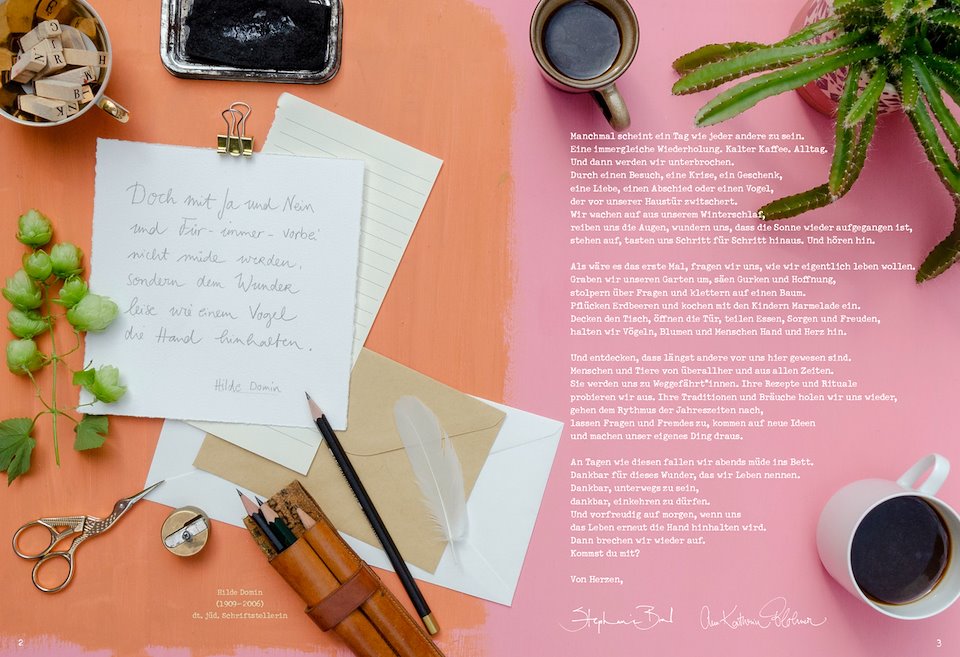 Doch mit Ja und Nein
und Für-immer-vorbei
nicht müde werden,
sondern dem Wunder
leise wie einem Vogel
die Hand hinhalten.
Hilde Domin
Hilde Domin
(1909–2006)
dt. jüd. Schriftstellerin
2
Manchmal scheint ein Tag wie jeder andere zu sein.
Eine immergleiche Wiederholung. Kalter Kaffee. Alltag.
Und dann werden wir unterbrochen.
Durch einen Besuch, eine Krise, ein Geschenk,
eine Liebe, einen Abschied oder einen Vogel,
der vor unserer Haustür zwitschert.
Wir wachen auf aus unserem Winterschlaf,
reiben uns die Augen, wundern uns, dass die Sonne wieder aufgegangen ist,
stehen auf, tasten uns Schritt für Schritt hinaus. Und hören hin.
Als wäre es das erste Mal, fragen wir uns, wie wir eigentlich leben wollen.
Graben wir unseren Garten um, säen Gurken und Hoffnung,
stolpern über Fragen und klettern auf einen Baum.
Pflücken Erdbeeren und kochen mit den Kindern Marmelade ein.
Decken den Tisch, öffnen die Tür, teilen Essen, Sorgen und Freuden,
halten wir Vögeln, Blumen und Menschen Hand und Herz hin.
Und entdecken, dass längst andere vor uns hier gewesen sind.
Menschen und Tiere von überallher und aus allen Zeiten.
Sie werden uns zu Weggefährt*innen. Ihre Rezepte und Rituale
probieren wir aus. Ihre Traditionen und Bräuche holen wir uns wieder,
gehen dem Rythmus der Jahreszeiten nach,
lassen Fragen und Fremdes zu, kommen auf neue Ideen
und machen unser eigenes Ding draus.
An Tagen wie diesen fallen wir abends müde ins Bett.
Dankbar für dieses Wunder, das wir Leben nennen.
Dankbar, unterwegs zu sein,
dankbar, einkehren zu dürfen.
Und vorfreudig auf morgen, wenn uns
das Leben erneut die Hand hinhalten wird.
Dann brechen wir wieder auf.
Kommst du mit?
Von Herzen,
3